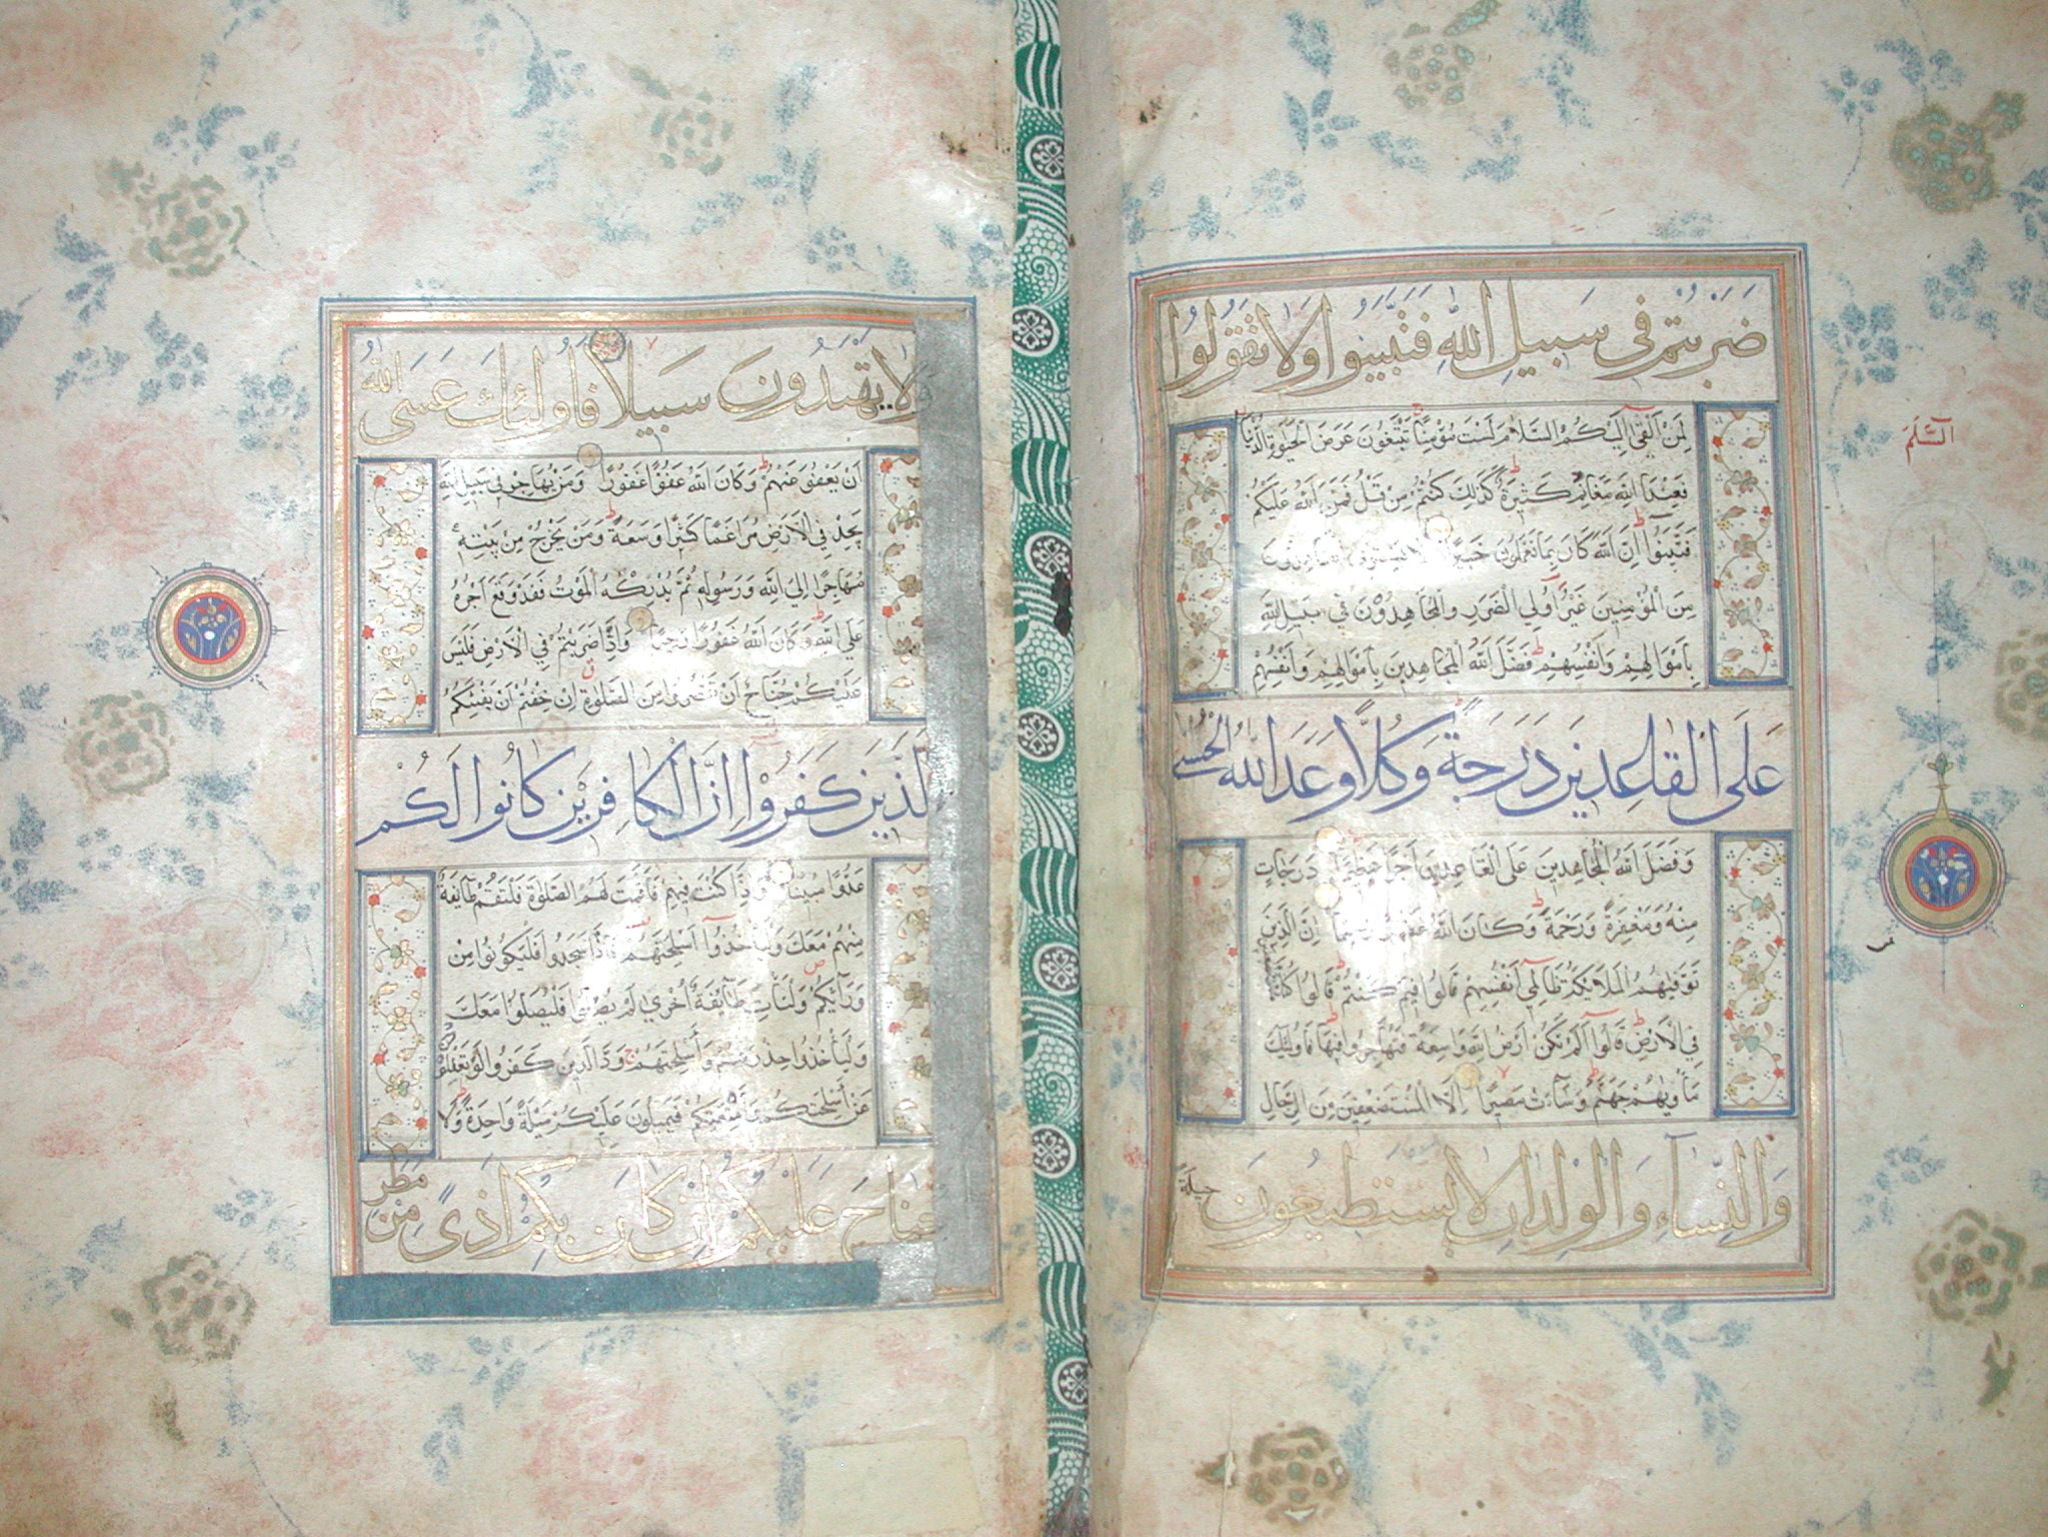 ضَرَبْتُمْ فِي سَبِيلِ اللَّهِ فَتَبَيَّنُوا وَلَا تَقُولُوا
لِمَنْ أَلْقَىٰ إِلَيْكُمُ السَّلَامَ لَسْتَ مُؤْمِنًا تَبْتَغُونَ عَرَضَ الْحَيٰوةِ الدُّنْيَا
فَعِنْدَ اللَّهِ مَغَانِمُ كَثِيرَةٌ كَذَٰلِكَ كُنْتُمْ مِنْ قَبْلُ فَمَنَّ اللَّهُ عَلَيْكُمْ
فَتَبَيَّنُوا إِنَّ اللَّهَ كَانَ بِمَا تَعْمَلُونَ خَبِيرًا لَا يَسْتَوِي الْقَاعِدُونَ
مِنَ الْمُؤْمِنِينَ غَيْرُ أُولِي الضَّرَرِ وَالْمُجَاهِدُونَ فِي سَبِيلِ اللَّهِ
بِأَمْوَالِهِمْ وَأَنْفُسِهِمْ فَضَّلَ اللَّهُ الْمُجَاهِدِينَ بِأَمْوَالِهِمْ وَأَنْفُسِهِمْ
عَلَى الْقَاعِدِينَ دَرَجَةً وَكُلًّا وَعَدَ اللَّهُ الْحُسْنَىٰ
وَفَضَّلَ اللَّهُ الْمُجَاهِدِينَ عَلَى الْقَاعِدِينَ أَجْرًا عَظِيمًا دَرَجَاتٍ
مِنْهُ وَمَغْفِرَةً وَرَحْمَةً وَكَانَ اللَّهُ غَفُورًا رَحِيمًا إِنَّ الَّذِينَ
تَوَفّٰيهُمُ الْمَلَائِكَةُ ظَالِمِي أَنْفُسِهِمْ قَالُوا فِيمَ كُنْتُمْ قَالُوا كُنَّا مُسْتَضْعَفِينَ
فِي الْأَرْضِ قَالُوا أَلَمْ تَكُنْ أَرْضُ اللَّهِ وَاسِعَةً فَتُهَاجِرُوا فِيهَا فَأُولَٰئِكَ
مَأْوٰيهُمْ جَهَنَّمُ وَسَاءَتْ مَصِيرًا إِلَّا الْمُسْتَضْعَفِينَ مِنَ الرِّجَالِ
وَالنِّسَاءِ وَالْوِلْدَانِ لَا يَسْتَطِيعُونَ حِيلَةً
السَّلَمَ
وَلَا يَهْتَدُونَ سَبِيلًا فَأُولَٰئِكَ عَسَى اللَّهُ
أَنْ يَعْفُوَ عَنْهُمْ وَكَانَ اللَّهُ عَفُوًّا غَفُورًا وَمَنْ يُهَاجِرْ فِي سَبِيلِ اللَّهِ
يَجِدْ فِي الْأَرْضِ مُرَاغَمًا كَثِيرًا وَسَعَةً وَمَنْ يَخْرُجْ مِنْ بَيْتِهِ
مُهَاجِرًا إِلَى اللَّهِ وَرَسُولِهِ ثُمَّ يُدْرِكْهُ الْمَوْتُ فَقَدْ وَقَعَ أَجْرُهُ
عَلَى اللَّهِ وَكَانَ اللَّهُ غَفُورًا رَحِيمًا وَإِذَا ضَرَبْتُمْ فِي الْأَرْضِ فَلَيْسَ
عَلَيْكُمْ جُنَاحٌ أَنْ تَقْصُرُوا مِنَ الصَّلٰوةِ إِنْ خِفْتُمْ أَنْ يَفْتِنَكُمُ
الَّذِينَ كَفَرُوا إِنَّ الْكَافِرِينَ كَانُوا لَكُمْ
عَدُوًّا مُبِينًا وَإِذَا كُنْتَ فِيهِمْ فَأَقَمْتَ لَهُمُ الصَّلٰوةَ فَلْتَقُمْ طَائِفَةٌ
مِنْهُمْ مَعَكَ وَلْيَأْخُذُوا أَسْلِحَتَهُمْ فَإِذَا سَجَدُوا فَلْيَكُونُوا مِنْ
وَرَائِكُمْ وَلْتَأْتِ طَائِفَةٌ أُخْرَىٰ لَمْ يُصَلُّوا فَلْيُصَلُّوا مَعَكَ
وَلْيَأْخُذُوا حِذْرَهُمْ وَأَسْلِحَتَهُمْ وَدَّ الَّذِينَ كَفَرُوا لَوْ تَغْفُلُونَ
عَنْ أَسْلِحَتِكُمْ وَأَمْتِعَتِكُمْ فَيَمِيلُونَ عَلَيْكُمْ مَيْلَةً وَاحِدَةً وَلَا
جُنَاحَ عَلَيْكُمْ إِنْ كَانَ بِكُمْ أَذًى مِنْ مَطَرٍ